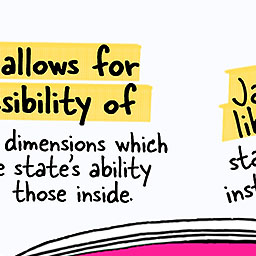 allows for
sibility of
dimensions which
state's ability
those inside.
Ja
lib
sta
inst